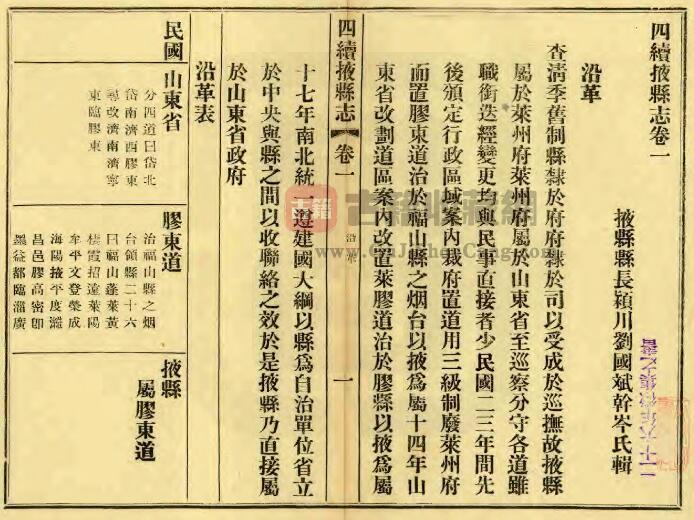 四續掖縣志卷一
掖縣縣長潁川劉國斌幹岑氏輯
沿革
查淸季舊制縣隸於府府隸於司以受成於巡撫故掖縣
屬於萊州府萊州府屬於山東省至巡察分守各道雖
職銜迭經變更均與民事直接者少民國二三年間先
後頒定行政區域案內裁府置道用三級制廢萊州府
而置膠東道治於福山縣之烟台以掖爲屬十四年山
東省改劃道區案內改置萊膠道治於膠縣以掖爲屬
四續掖縣志
卷一
沿革
一
十七年南北統一遵建國大綱以縣爲自治單位省立
於中央與縣之間以收聯絡之效於是掖縣乃直接屬
於山東省政府
沿革表
民國
山東省
分四道曰岱北
岱南濟西膠東
尋改濟南濟寧
東臨膠東
膠東道
治福山縣之烟
台領縣二十六
曰福山蓬萊黃
棲霞招遠萊陽
牟平文登榮成
海陽掖平度濰
昌邑膠高密卽
墨益都臨淄廣
掖縣
屬膠東道
古籍
古籍收藏網
www.GuJiShuCang.Com